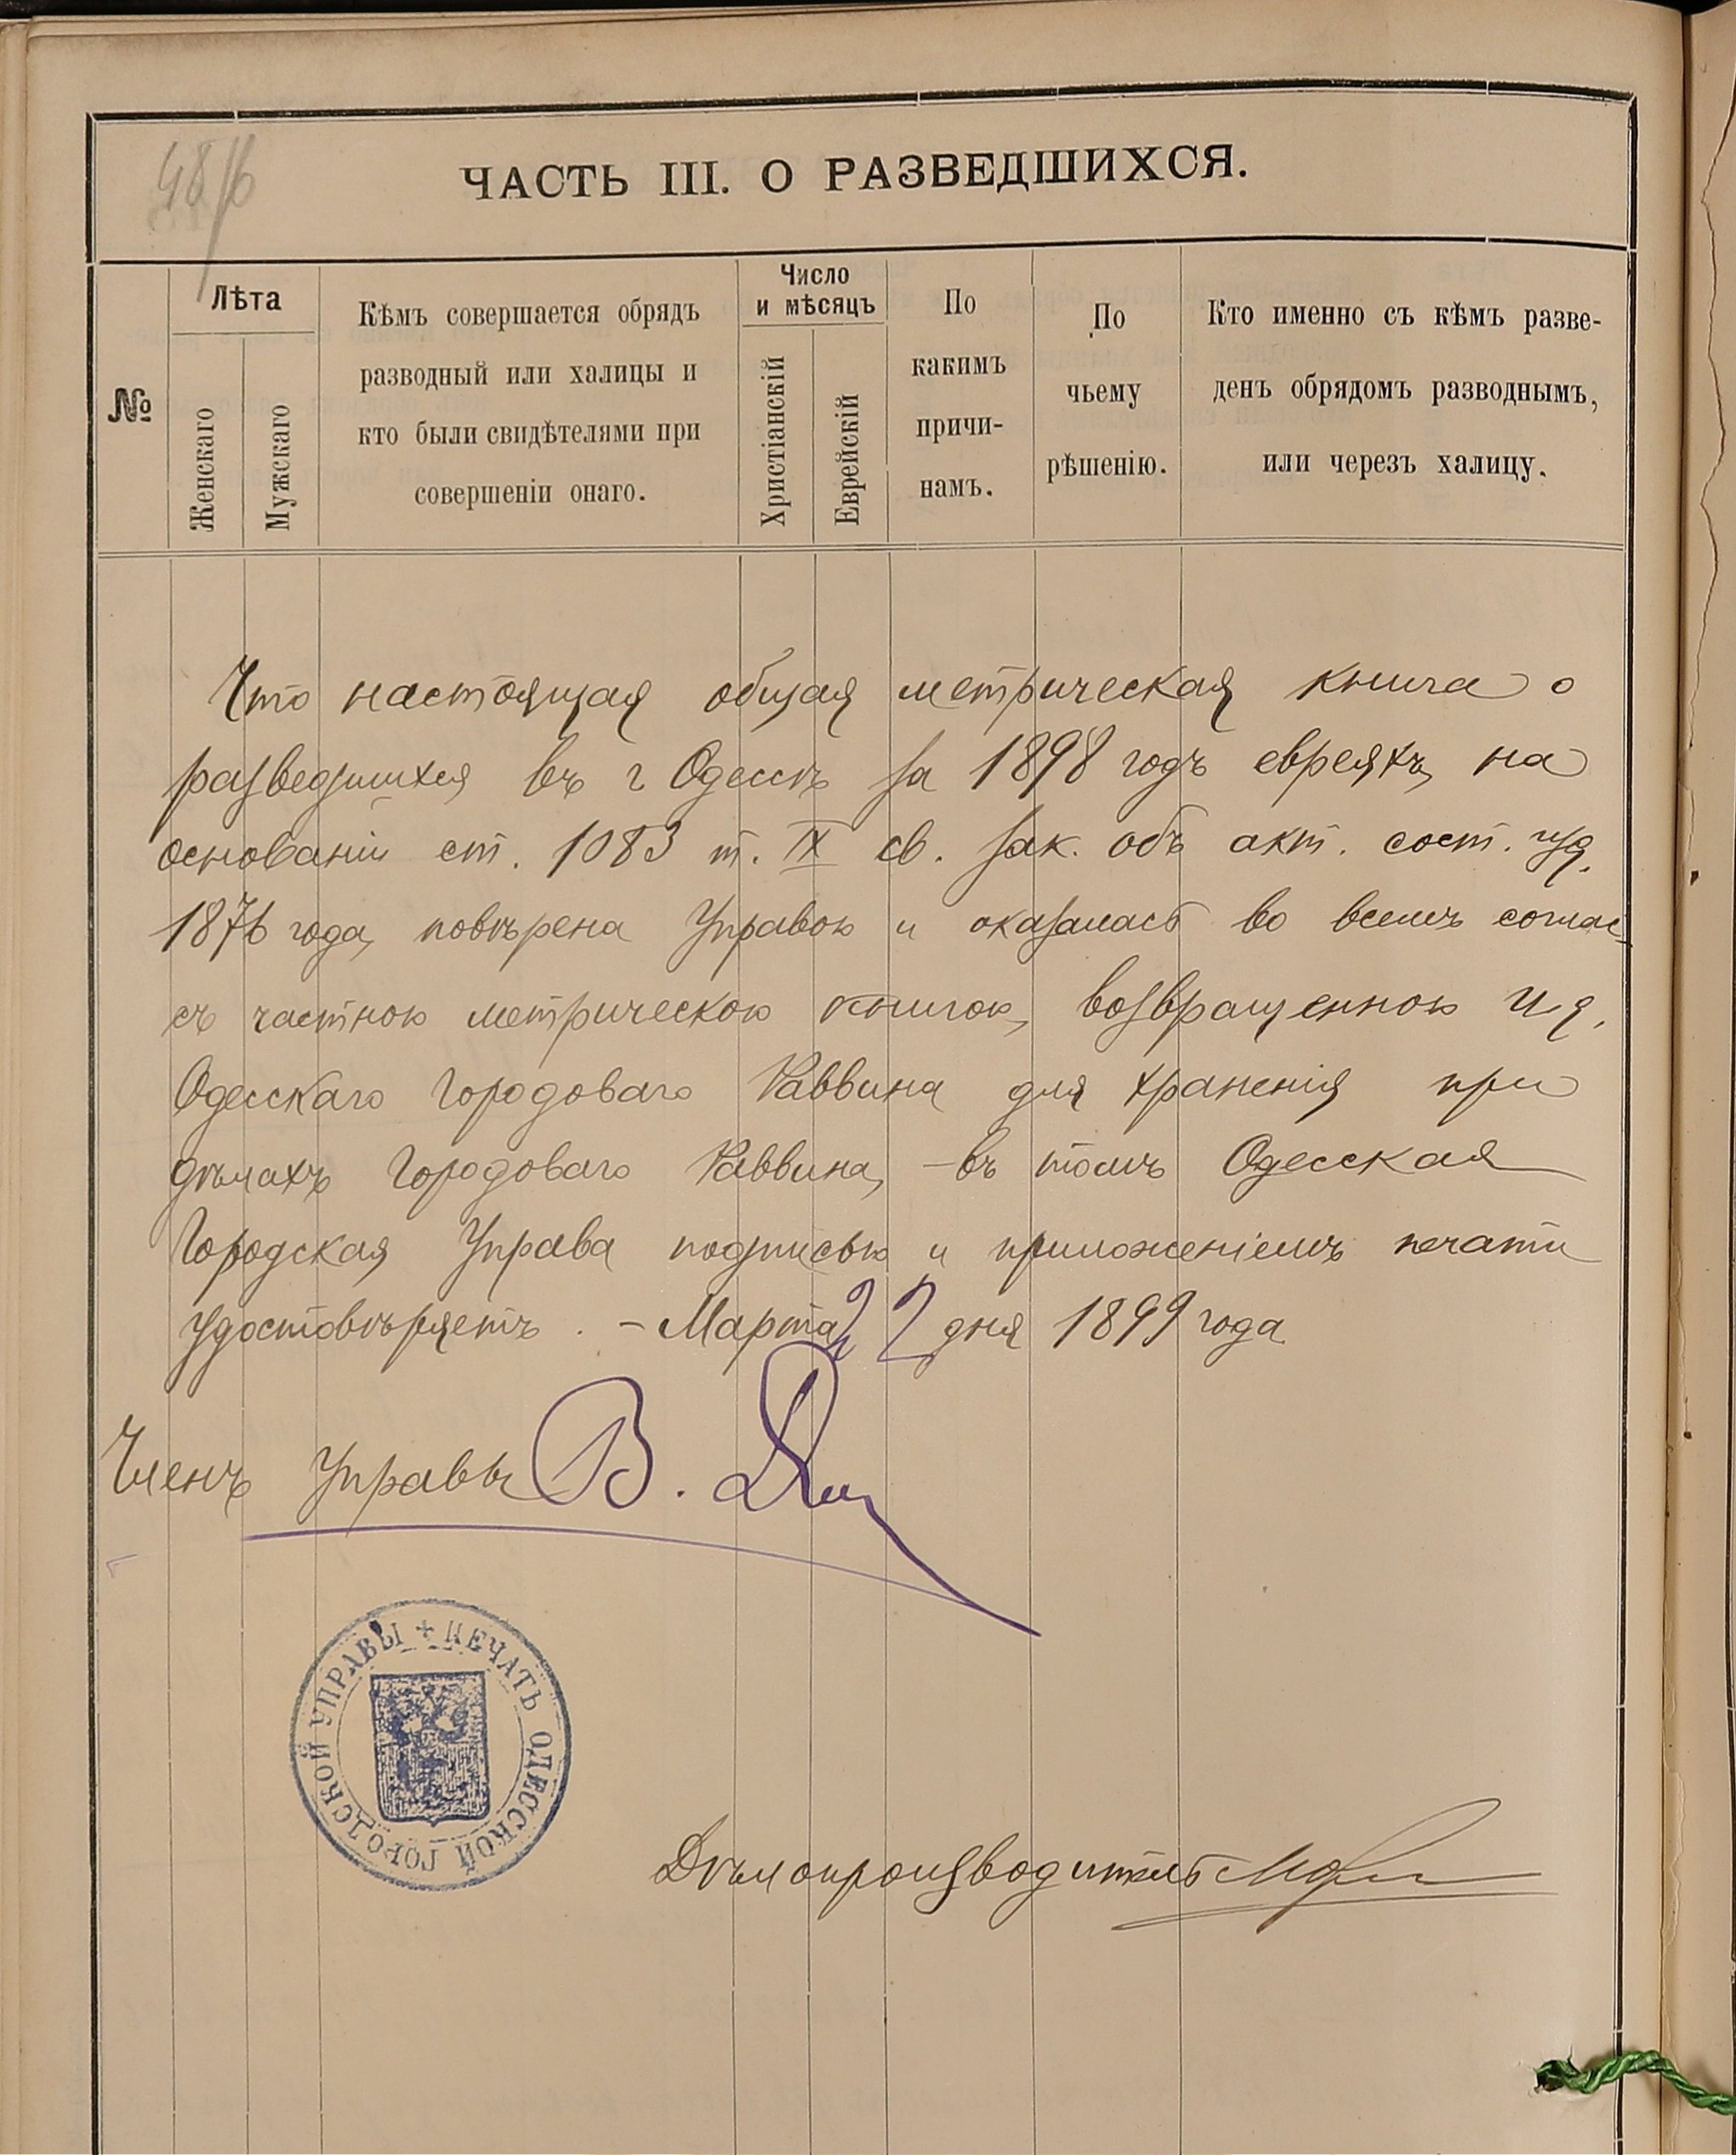 ЧАСТЬ III. О РАЗВЕДШИХСЯ.
№
Лѣта
Женскаго
Мужскаго
Кѣмъ совершается обрядъ
разводный или халицы и
кто были свидѣтелями при
совершеніи онаго.
Число
и мѣсяцъ
Христіанскій
Еврейскій
По
какимъ
причи-
намъ.
По
чьему
рѣшенію.
Кто именно съ кѣмъ разве-
денъ обрядомъ разводнымъ,
или черезъ халицу.
Что настоящая общая метрическая книга о
разведшихся въ г Одессѣ за 1898 годъ евреяхъ, на
основаніи ст. 1083 т. IX св. зак. объ акт. сост. изд.
1876 года, повѣрена Управою и оказалась во всемъ соглас-
съ частною метрическою книгою, возвращенною
Одесскаго Городоваго Раввина для храненія при
дѣлахъ Городоваго Раввина, – въ томъ Одесская
Городская Управа подписью и приложеніемъ печати
удостовѣряетъ. – Марта 22 дня 1899 года
Членъ Управы В.
ПЕЧАТЬ ОДЕССКОЙ ГОРОДСКОЙ УПРАВЫ
Дѣлопроизводитель